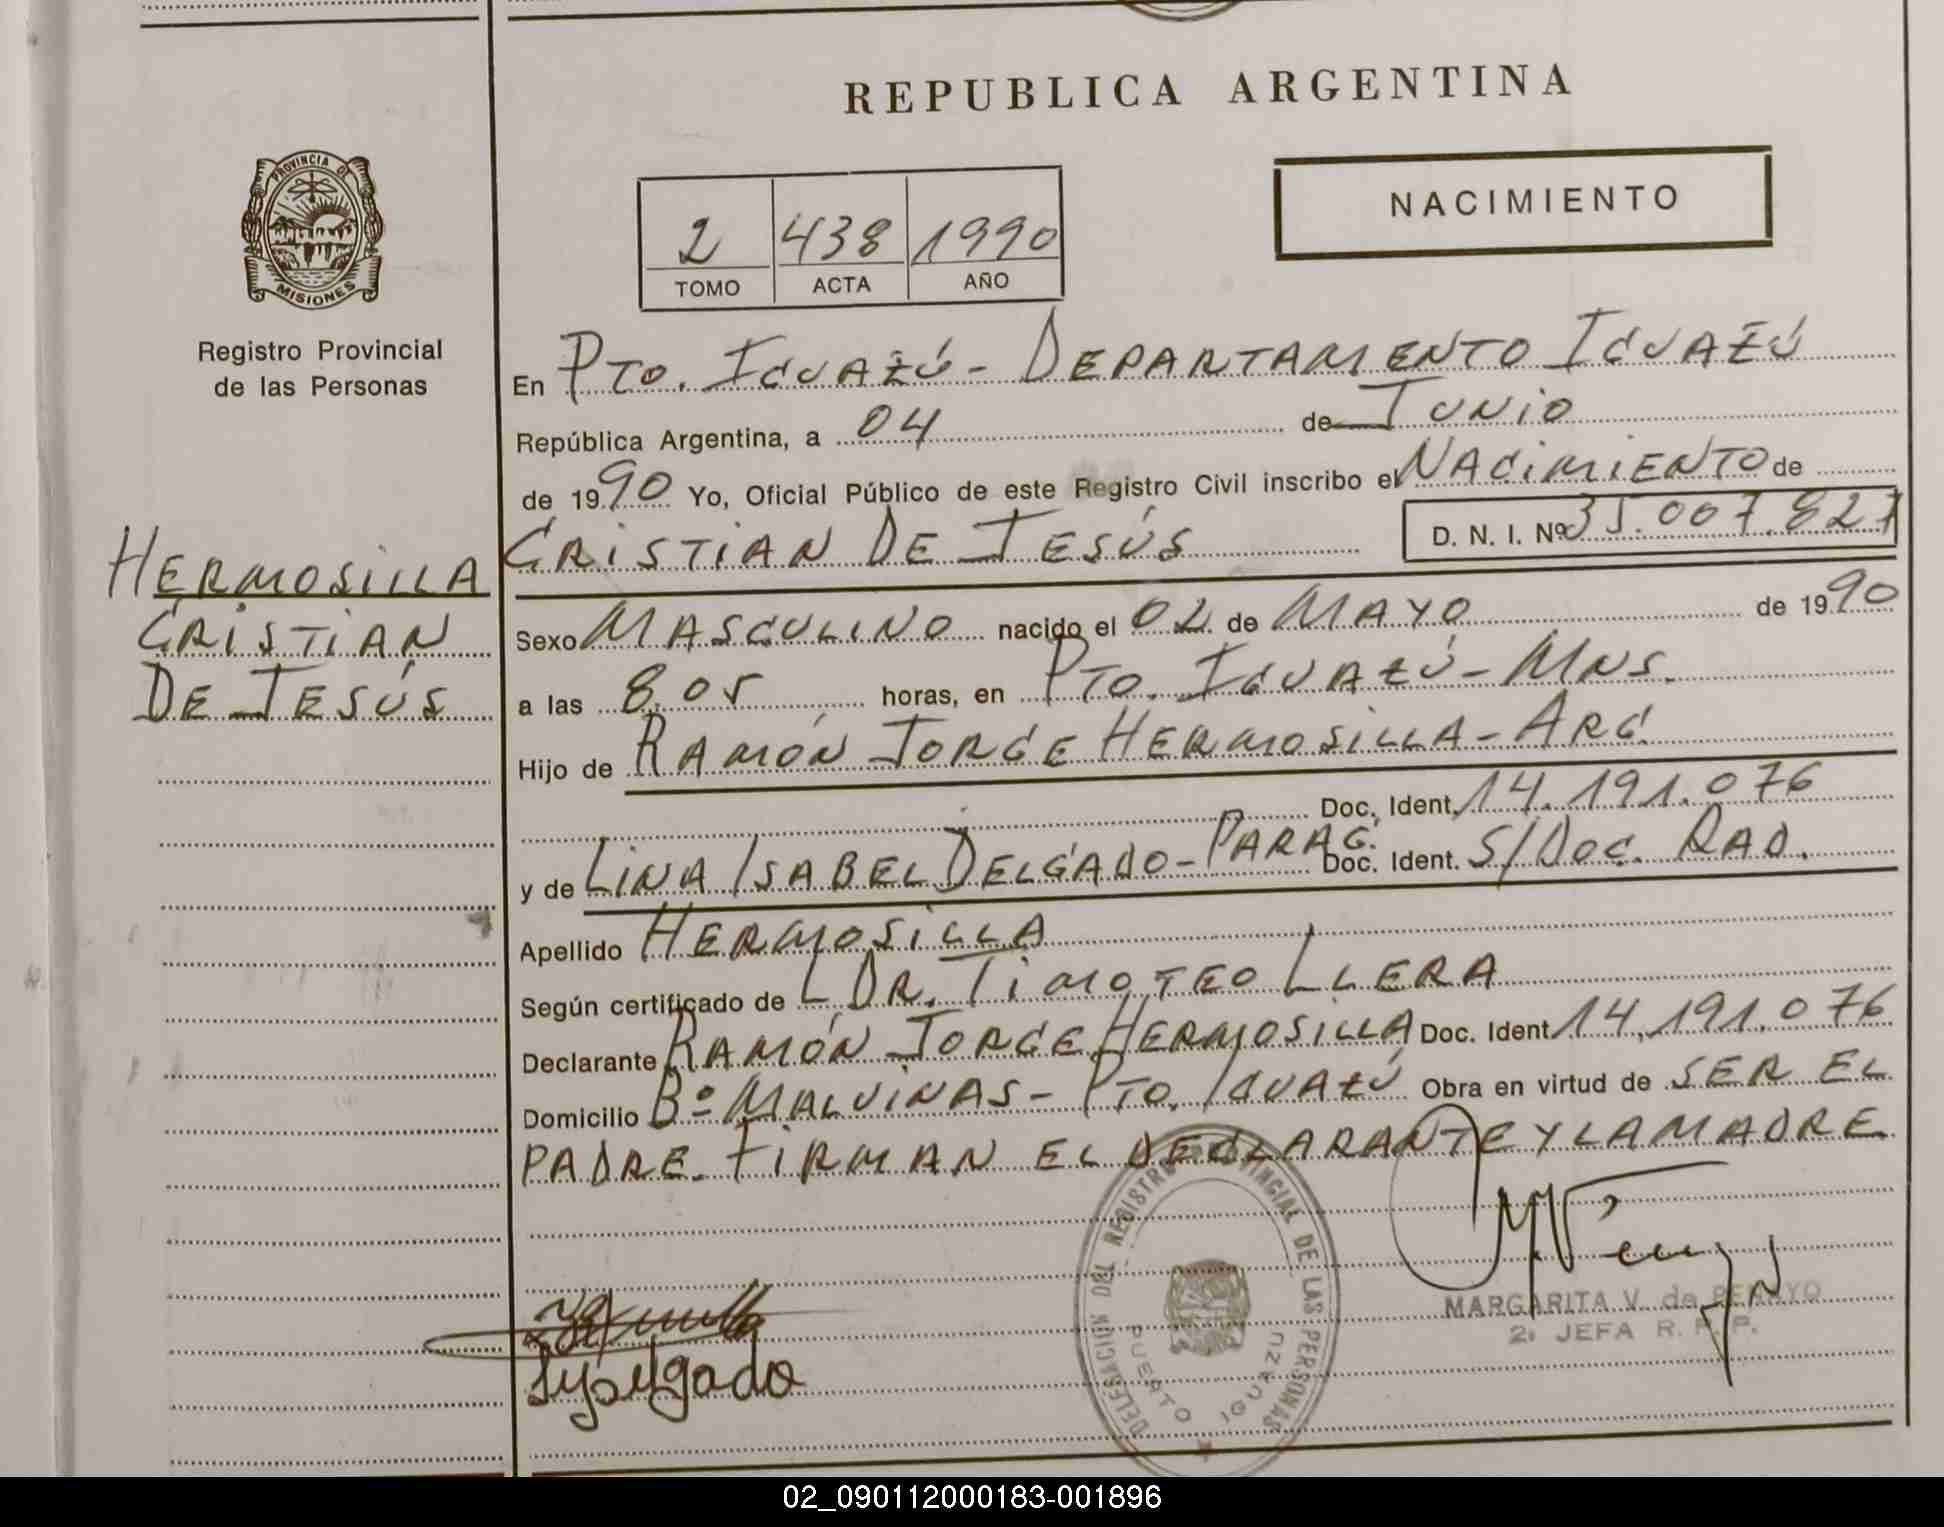 REPUBLICA ARGENTINA
NACIMIENTO
2 438 1990
TOMO ACTA AÑO
PROVINCIA DE
MISIONES
Registro Provincial
de las Personas
HERMOSILLA
CRISTIAN
DE JESÚS
En PTO. IGUAZÚ - DEPARTAMENTO IGUAZÚ
República Argentina, a 04 de JUNIO
de 1990 Yo, Oficial Público de este Registro Civil inscribo el NACIMIENTO de
CRISTIAN DE JESÚS D. N. I. Nº 35.007.827
Sexo MASCULINO nacido el 02 de MAYO de 1990
a las 8,05 horas, en PTO. IGUAZÚ - MNS.
Hijo de RAMÓN JORGE HERMOSILLA - ARG.
Doc. Ident. 14.191.076
y de LINA ISABEL DELGADO - PARAG. Doc. Ident. S/DOC. RAD.
Apellido HERMOSILLA
Según certificado de L DR. TIMOTEO LLERA
Declarante RAMÓN JORGE HERMOSILLA Doc. Ident. 14.191.076
Domicilio Bº MALVINAS - PTO. IGUAZÚ Obra en virtud de SER EL
PADRE. FIRMAN EL DECLARANTE Y LA MADRE
DELEGACION DEL REGISTRO PROVINCIAL DE LAS PERSONAS
PUERTO IGUAZU
MARGARITA V. de
2ª JEFA R. P. P.
02_090112000183-001896